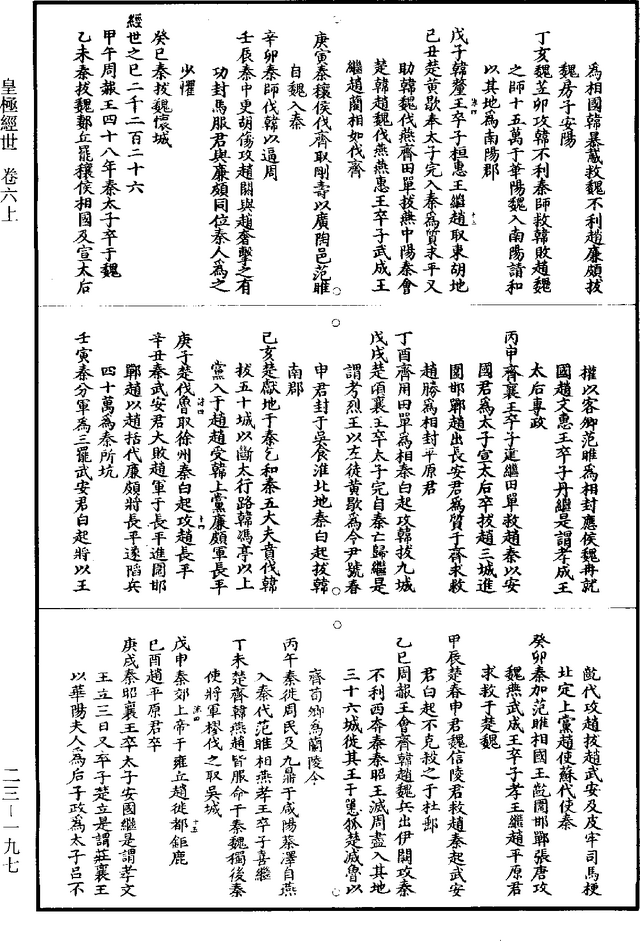 爲相國韓暴蔵救魏不利趙廉頗拔
魏房子安陽
丁亥魏芒卯攻韓不利秦師救韓敗趙魏
之師十五萬于華陽魏入南陽請和
以其地爲南陽郡
戊子韓釐王卒子桓惠王繼趙取東胡地
己丑楚黃歇奉太子完入秦爲質求平又
助韓魏伐燕齊田單拔燕中陽秦會
楚韓趙魏伐燕燕惠王卒子武成王
繼趙蘭相如伐齊
庚寅秦穰侯伐齊取剛壽以廣陶邑范雎
自魏入秦
辛卯秦師伐韓以逼周
壬辰秦中更胡傷攻趙閼與趙奢擊之有
功封馬服君與廉頗同位秦人爲之
少懼
癸巳秦拔魏懷城
經世之巳二千二百二十六
甲午周赧王四十八年秦太子卒于魏
乙未秦拔魏郪丘罷穰侯相國及宣太后
權以客卿范雎爲相封應侯魏冉就
國趙文惠王卒子丹繼是謂孝成王
太后專政
丙申齊襄王卒子建繼田單救趙秦以安
國君爲太子宣太后卒拔趙三城進
圍邯鄲趙出長安君爲質于齊求救
趙勝爲相封平原君
丁酉齊用田單爲相秦白起攻韓拔九城
戊戌楚頃襄王卒太子完自秦亡歸繼是
謂考烈王以左徒黃歇爲令尹號春
申君封于吳食淮北地秦白起拔韓
南郡
己亥楚獻地于秦乞和秦五大夫賁伐韓
拔五十城以斷太行路韓馮亭以上
黨入于趙趙受韓上黨廉頗軍長平
庚子楚伐魯取徐州秦白起攻趙長平
辛丑秦武安君大敗趙軍于長平進圍邯
鄲趙以趙括代廉頗將長平遂陷兵
四十萬爲秦所坑
壬寅秦分軍爲三罷武安君白起將以王
齕代攻趙拔趙武安及皮牢司馬梗
北定上黨趙使蘇代使秦
癸卯秦加范雎相國王齕圍邯鄲張唐攻
魏燕武成王卒子孝王繼趙平原君
求救于楚魏
甲辰楚春申君魏信陵君救趙秦起武安
君白起不克殺之于杜郵
乙巳周赧王會齊韓趙魏兵出伊闕攻秦
不利西奔秦秦昭王滅周盡入其地
三十六城徙其王于㥄狐楚滅魯以
齊荀卿爲蘭陵令
丙午秦徙周民及九鼎于咸陽蔡澤自燕
入秦代范雎相燕孝王卒子喜繼
丁未楚齊韓燕趙皆服命于秦魏獨後秦
使將軍摎伐之取吳城
戊申秦郊上帝于雍丘趙徙都鉅鹿
己酉趙平原君卒
庚戌秦昭襄王卒太子安國繼是謂孝文
王立三日又卒子楚立是謂莊襄王
以華陽夫人爲后子政爲太子呂不
皇極經世 卷六上
二三—一九七